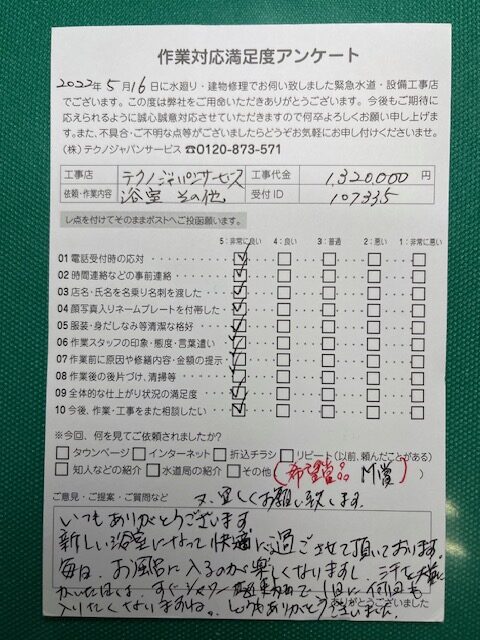 作業対応満足度アンケート
2022年5月16日に水廻り・建物修理でお伺い致しました緊急水道・設備工事店
でございます。この度は弊社をご用命いただきありがとうございます。今後もご期待に
応えられるように誠心誠意対応させていただきますので何卒よろしくお願い申し上げま
す。また、不具合・ご不明な点等がございましたらどうぞお気軽にお申し付けくださいませ。
(株)テクノジャパンサービス ☎0120-873-571
工事店 テクノジャパンサービス 工事代金 1,320,000 円
依頼・作業内容 浴室 その他 受付ID 107335
レ点を付けてそのままポストへご投函願います。
5:非常に良い 4:良い 3:普通 2:悪い 1:非常に悪い
01 電話受付時の応対
02 時間連絡などの事前連絡
03 店名・氏名を名乗り名刺を渡した
04 顔写真入りネームプレートを付帯した
05 服装・身だしなみ等清潔な格好
06 作業スタッフの印象・態度・言葉遣い
07 作業前に原因や修繕内容・金額の提示
08 作業後の後片づけ、清掃等
09 全体的な仕上がり状況の満足度
10 今後、作業・工事をまた相談したい
※今回、何を見てご依頼されましたか?
タウンページ インターネット 折込チラシ リピート(以前、頼んだことがある)
知人などの紹介 水道局の紹介 その他(希望賞品 M賞)
ご意見・ご提案・ご質問など 又、宜しくお願い致します。
いつもありがとうございます
新しい浴室になって快適に過ごさせて頂いております。
毎日、お風呂に入るのが楽しくなりますし、汗を大量に
かいた すぐシャワー 1日に何回も
入りたくなりますね。 ありがとうございました。
ありがとうございました